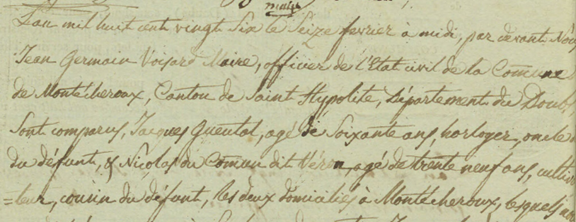 matin
L'an mil huit cent vingt six le Seize fevrier à midi, par devant Nous
Jean Germain Voisard Maire, officier de l'Etat civil de la Commune
de Montécheroux, Canton de Saint hypolite, Département du Doubs
Sont comparus, Jacques Queulot, agé de Soixante ans, horloger, oncle
du défunt, & Nicolas du Comun dit Véron, agé de trente neuf ans, cultiva
=teur, cousin du défunt, les deux domiciliés à Montécheroux, lesquels